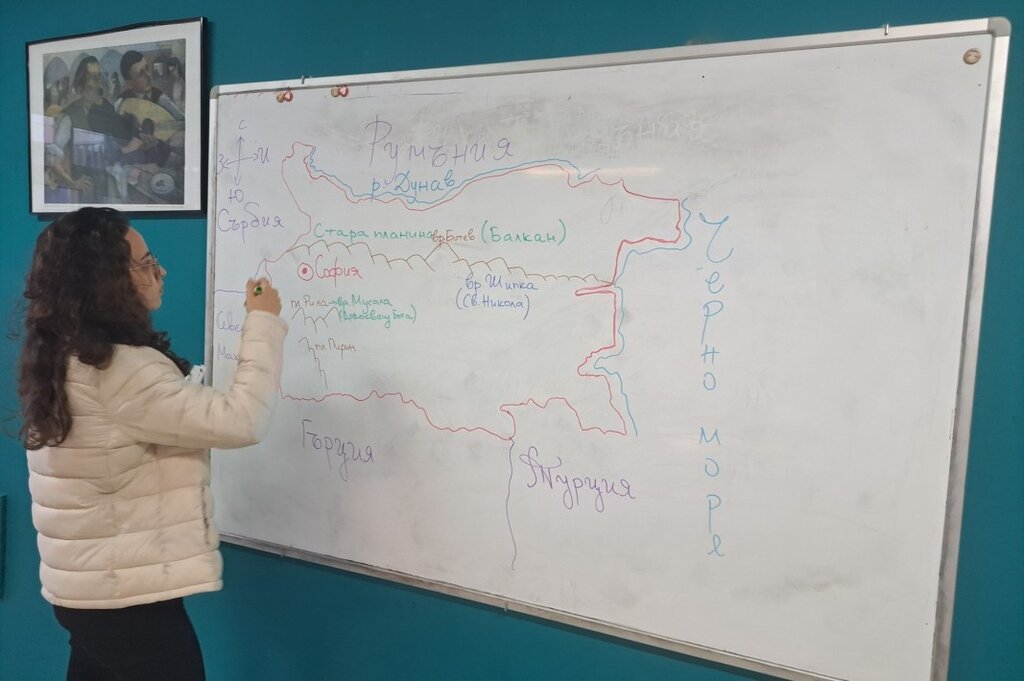 С
З И
Ю
Румъния
р. Дунав
Сърбия
Стара планина вр. Ботев (Балкан)
София
вр. Шипка
(Св. Никола)
пл. Рила вр. Мусала
пл. Пирин
Гърция
Турция
Черно море